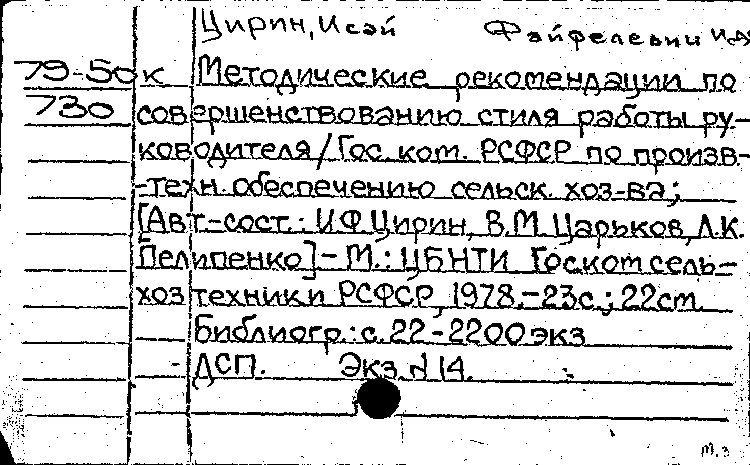 Цирин, Исай Файфелевич и др
79-50к Методические рекомендации по
730 совершенствованию стиля работы ру-
ководителя/Гос. ком. РСФСР по произв-
-техн. обеспечению сельск. хоз-ва;
[Авт-сост.: И.Ф.Цирин, В.М. Царьков, Л.К.
Пелипенко] - М.: ЦБНТИ Госкомсель-
хозтехники РСФСР, 1978.-23с.; 22см.
Библиогр.: с. 22 - 2200 экз
ДСП. Экз. N 14.
м. з